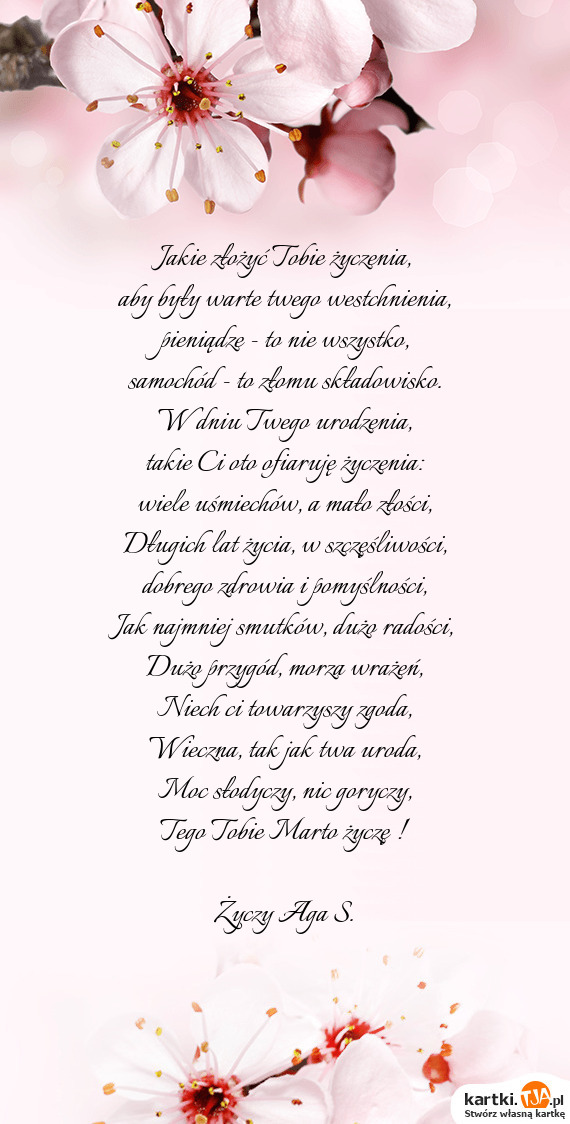 Jakie złożyć Tobie życzenia,
aby były warte twego westchnienia,
pieniądze - to nie wszystko,
samochód - to złomu składowisko.
W dniu Twego urodzenia,
takie Ci oto ofiaruję życzenia:
wiele uśmiechów, a mało złości,
Długich lat życia, w szczęśliwości,
dobrego zdrowia i pomyślności,
Jak najmniej smutków, dużo radości,
Dużo przygód, morza wrażeń,
Niech ci towarzyszy zgoda,
Wieczna, tak jak twa uroda,
Moc słodyczy, nic goryczy,
Tego Tobie Marto życzę !
Życzy Aga S.
kartki.TJA.pl
Stwórz własną kartkę